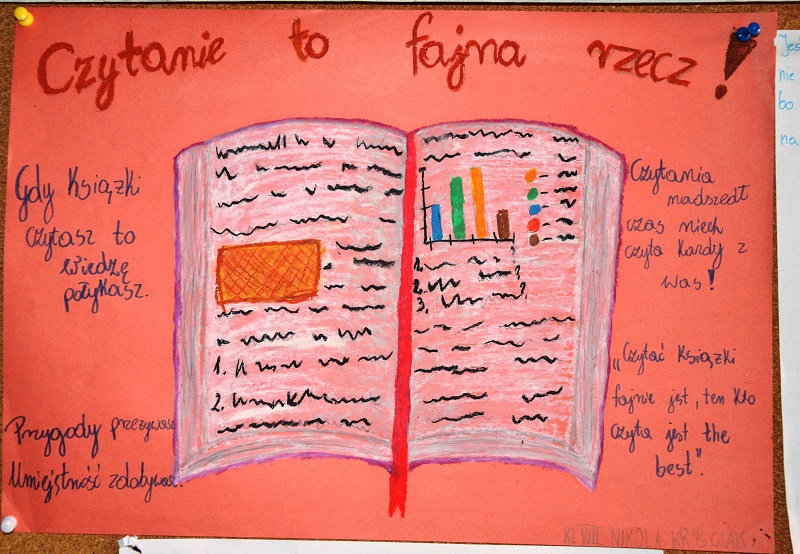 Czytanie to fajna rzecz!
Gdy książki
czytasz to
wiedzę
połykasz.
Czytania
nadszedł
czas niech
czyta każdy z
was!
Przygody przeżywasz
Umiejętność zdobywasz.
"Czytać książki
fajnie jest, ten kto
czyta jest the
best".
1.
2.
1.
2.
3.
KL VIE NIKOLA
Jeś
nie
bo
na